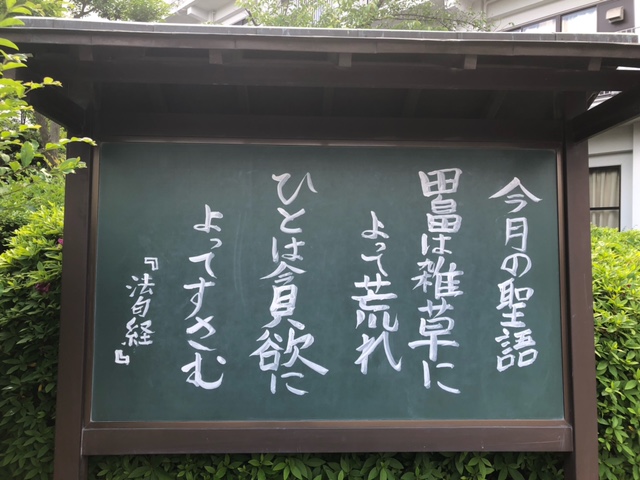 今月の聖語
田畠は雑草に
よって荒れ
ひとは貪欲に
よってすさむ
『法句経』